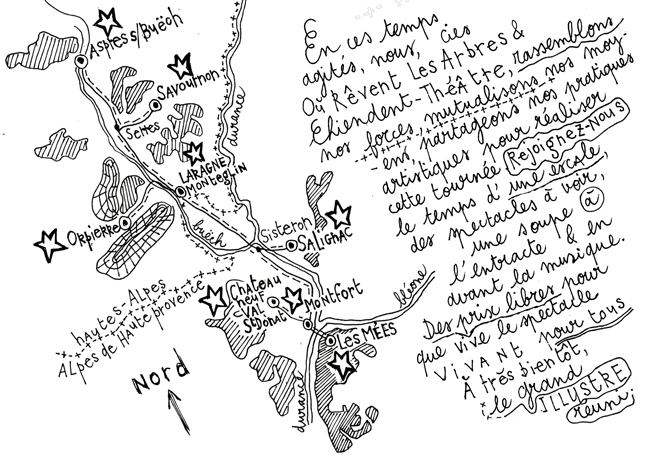 Aspres s/Buëch
Savournon
Serres
durance
LARAGNE
Monteglin
Orpierre
buëch
Sisteron
SALIGNAC
hAUtes-Alpes
Alpes de Haute provence
Château
neuf
VAL
St Donat
Montfort
bléone
Les MÉES
durance
Nord
En ces temps
agités, nous, cies
Où Rêvent Les Arbres &
Chiendent-Théâtre, rassemblons
nos forces, mutualisons nos moy-
-ens, partageons nos pratiques
artistiques pour réaliser
cette tournée. Rejoignez-nous
le temps d'une escale,
des spectacles à voir,
une soupe à
l'entracte & en
avant la musique.
Des prix libres pour
que vive le spectacle
VIVANT pour tous
À très bientôt,
le grand
ILLUSTRE
réuni